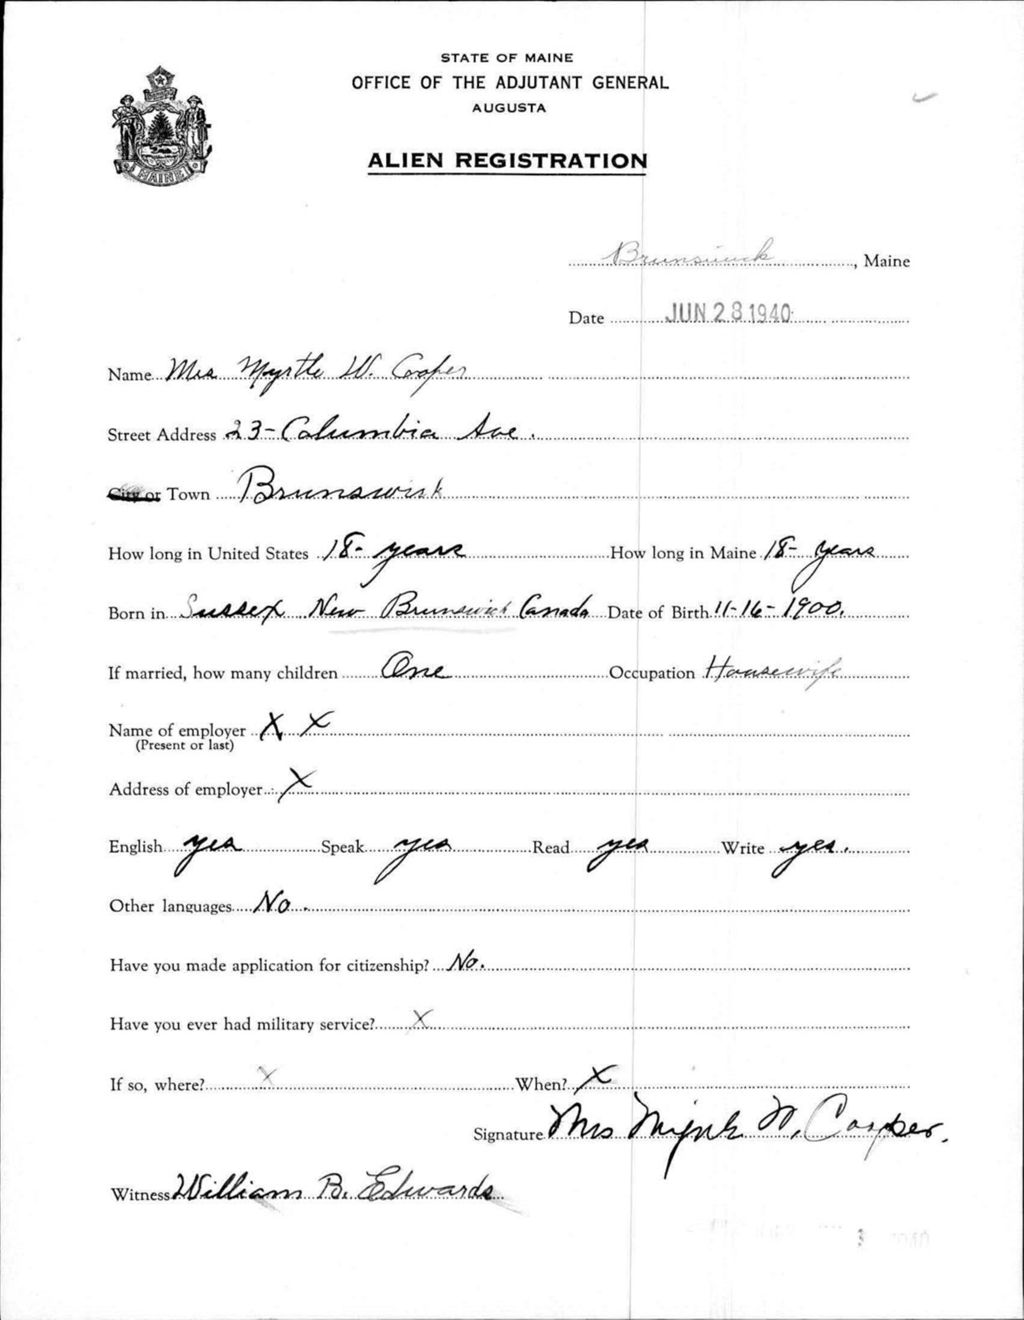 STATE OF MAINE
OFFICE OF THE ADJUTANT GENERAL
AUGUSTA
ALIEN REGISTRATION
MAINE
Brunswick, Maine
Date JUN 28 1940
Name Mrs Myrtle W. Cooper
Street Address 23- Columbia Ave.
City or Town Brunswick
How long in United States 18- years How long in Maine 18- years
Born in Sussex New Brunswick Canada Date of Birth 11-16-1900.
If married, how many children One Occupation Housewife
Name of employer X X
(Present or last)
Address of employer X
English yes Speak yes Read yes Write yes.
Other languages No.
Have you made application for citizenship? No.
Have you ever had military service? X
If so, where? X When? X
Signature Mrs Myrtle W. Cooper.
Witness William B. Edwards